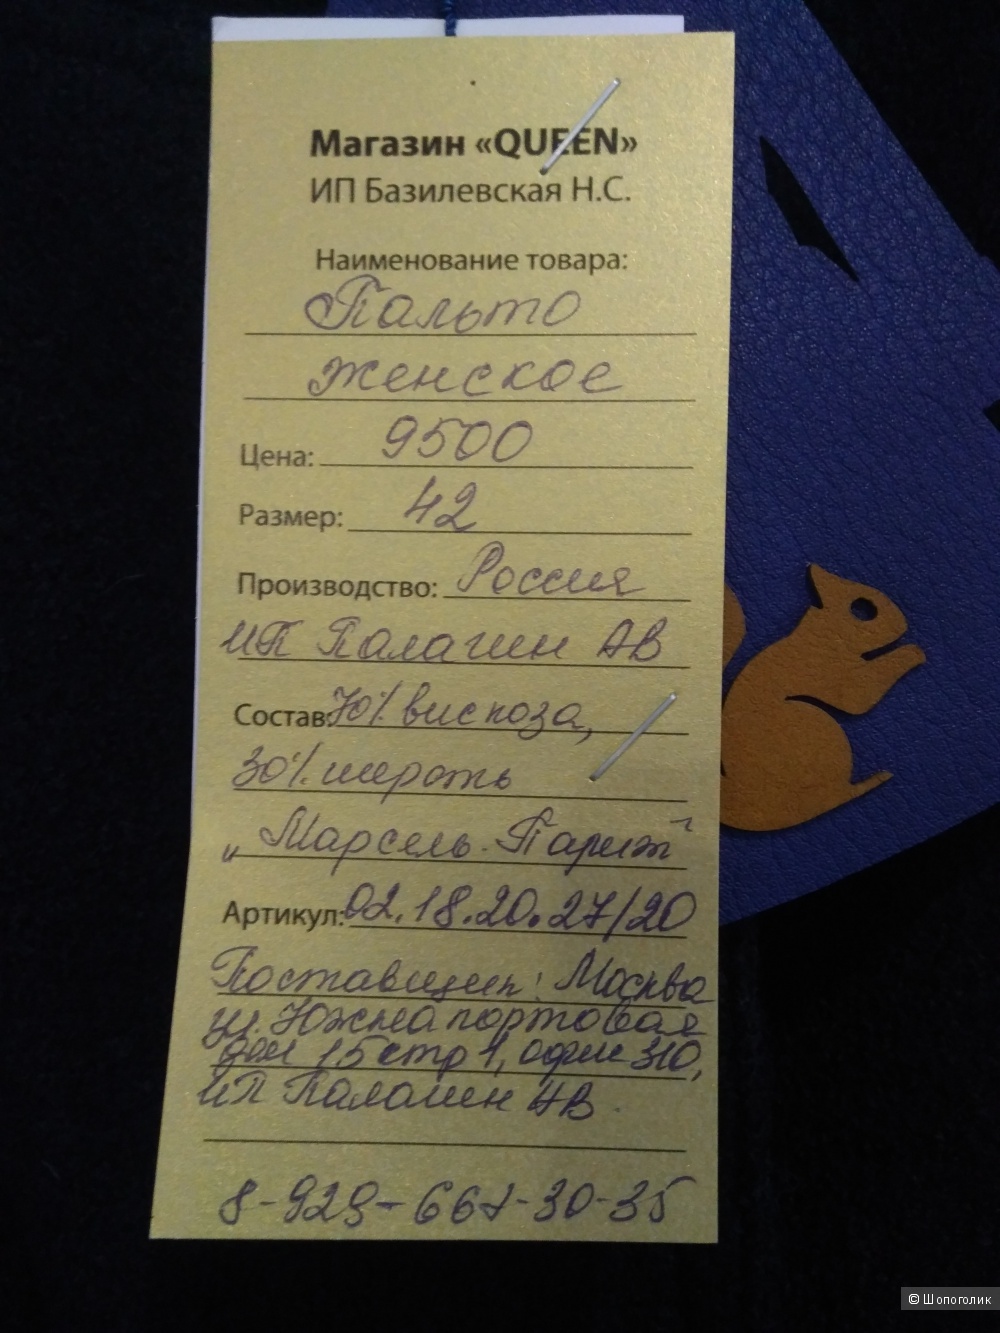 Магазин «QUEEN»
ИП Базилевская Н.С.
Наименование товара:
Пальто
женское
Цена: 9500
Размер: 42
Производство: Россия
ИП Палагин АВ
Состав: 70% вискоза,
30% шерсть
„Марсель-Париж"
Артикул: 02.18.20.27/20
Поставщик: Москва
ул. Южнапортовая
дом 15 стр 1, офис 310,
ИП АВ.
8-929-661-30-35
© Шопоголик